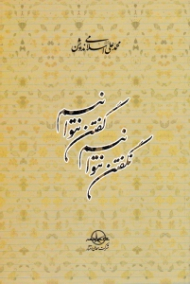 محمدعلی اسلامی ندوشن
گفتن نتوانیم
نگفتن نتوانیم